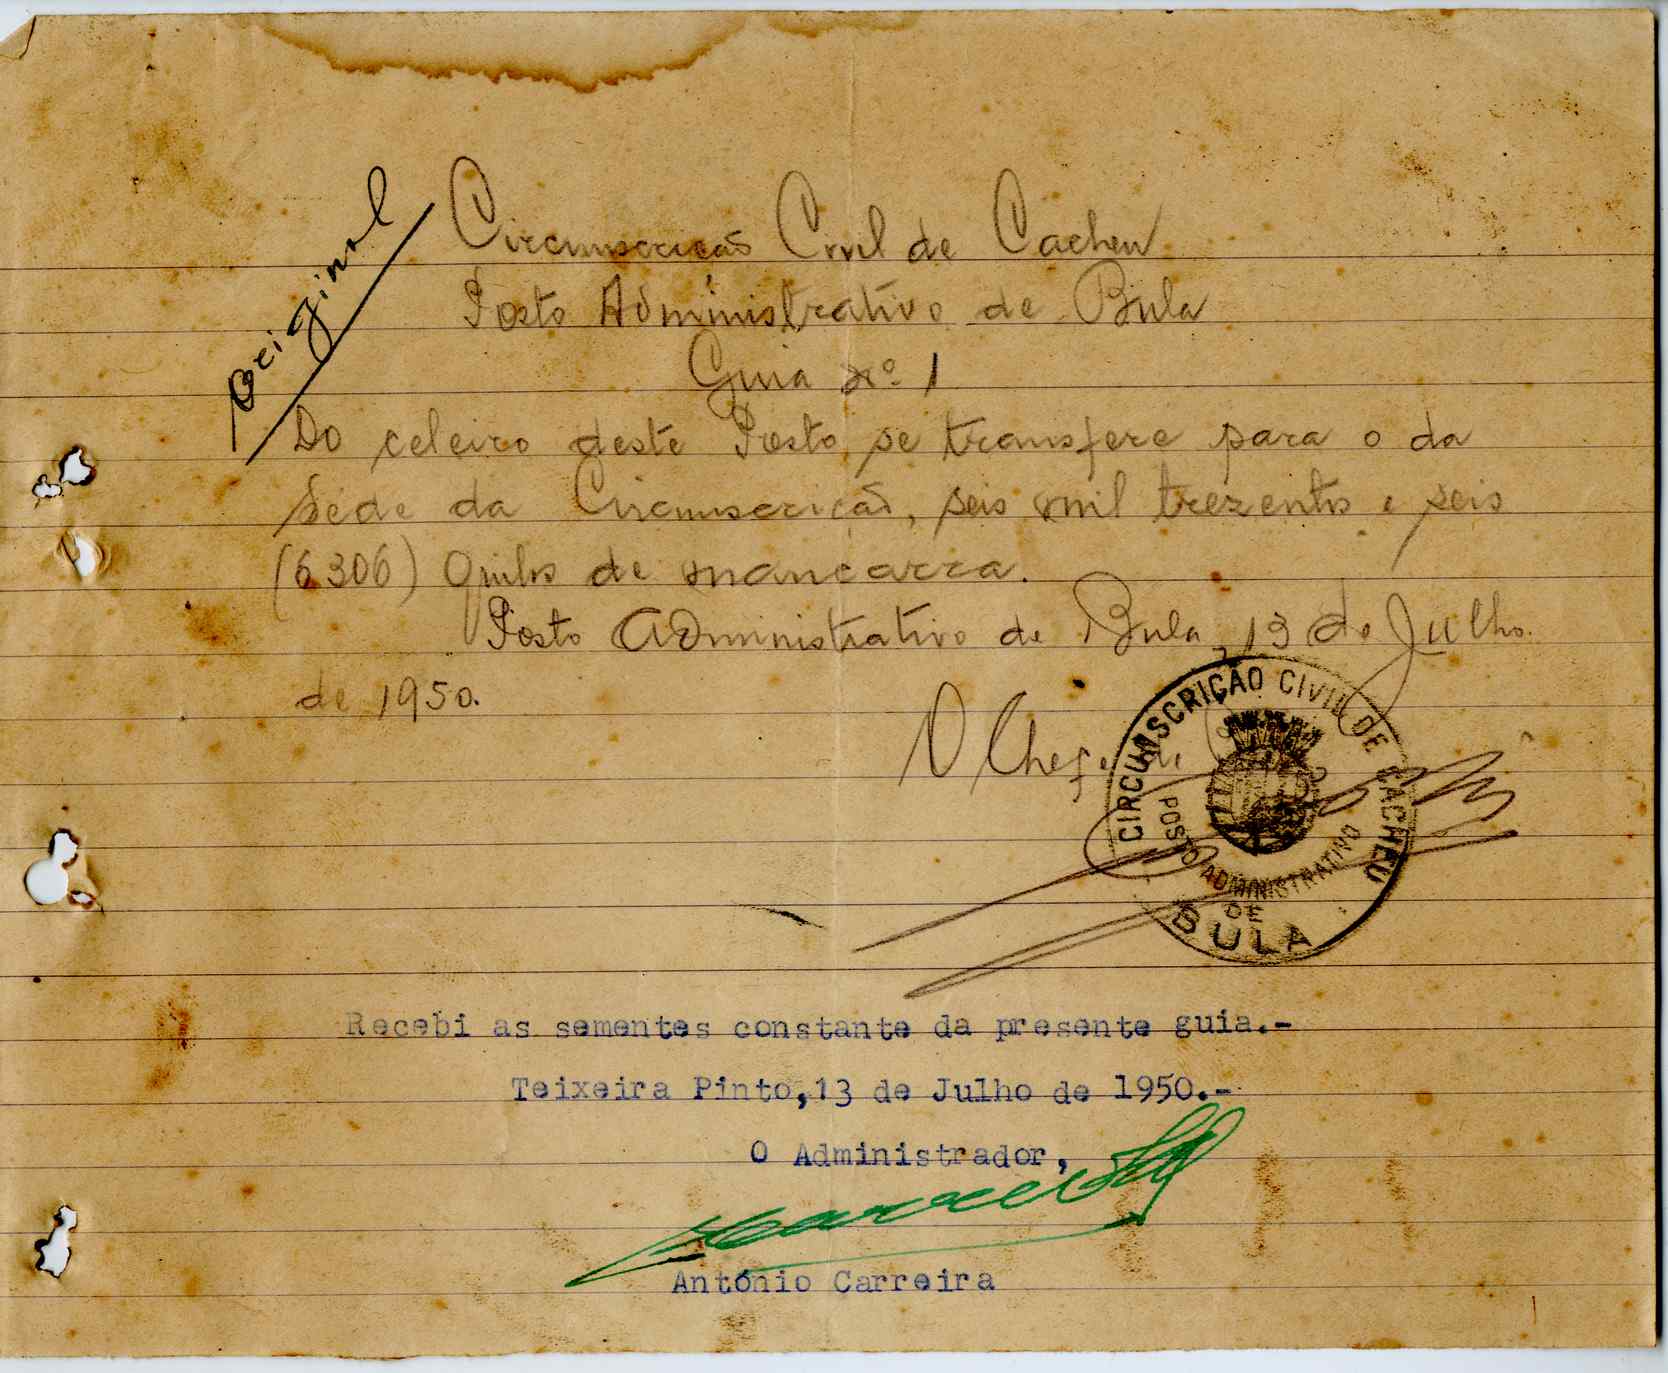 Original
Circunscrição Civil de Cacheu
Posto Administrativo de Bula
Guia nº 1
Do celeiro deste Posto, se transfere para o da
Séde da Circunscrição, seis mil trezentos e seis
(6306) Quilos de mancarra.
Posto Administrativo de Bula, 13 de Julho
de 1950.
O Chefe de
CIRCUNSCRIÇÃO CIVIL DE CACHEU
POSTO ADMINISTRATIVO
DE
BULA
Recebi as sementes constante da presente guia.-
Teixeira Pinto,13 de Julho de 1950.-
O Administrador,
António Carreira